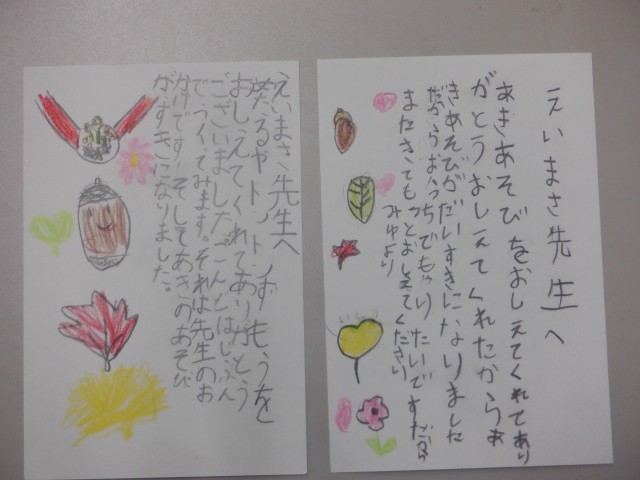 えいまさ先生へ
あきあそびをおしえてくれてあり
がとうおしえてくれたからあ
きあそびがだいすきになりました
だからおうちでもやりたいですだから
またきてもっとおしえてください
みゆより
えいまさ先生へ
トントンずもうを
おしえてくれてありがとう
ございましたこんどはじぶん
でつくてみます。それは先生のお
かげです！そしてあきのあそび
がすきになりました。